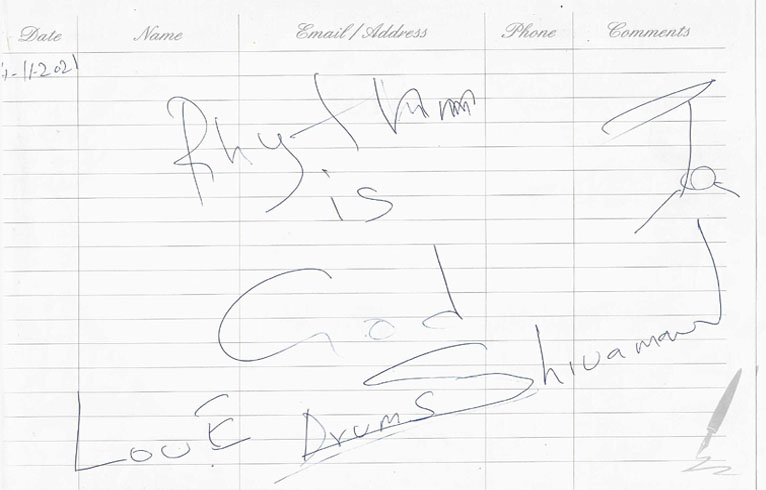 Date Name Email / Address Phone Comments
-11-2021
Rhythm
is
God
Shivamani
LOVE Drums